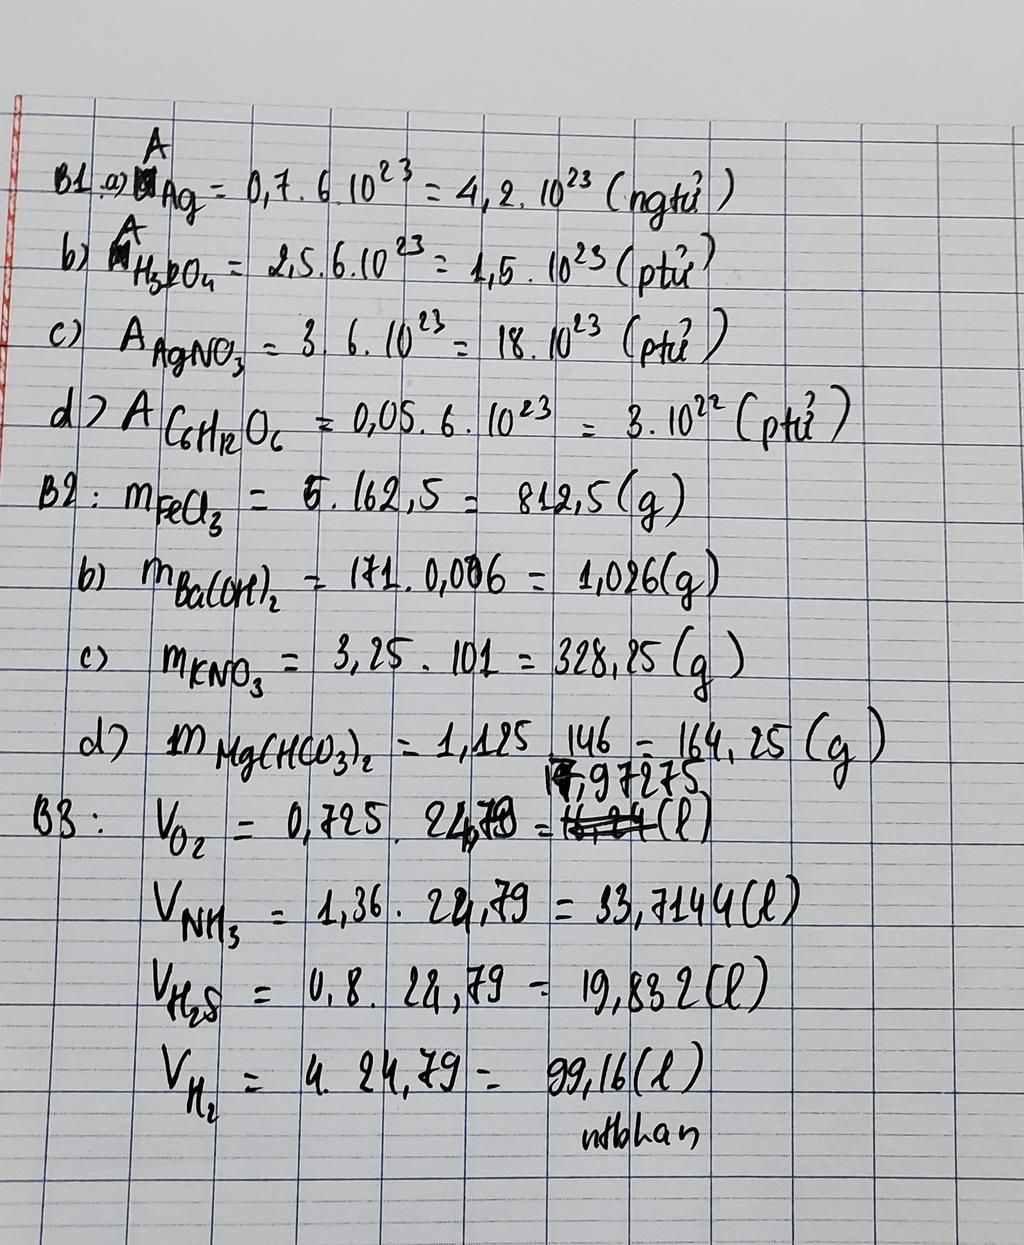 A
B1.a) Ag = 0,7.6.10²³ = 4,2.10²³ (ngtử)
A
b) H₃PO₄ = 2,5.6.10²³ = 1,5.10²³ (ptử)
c) A AgNO₃ = 3.6.10²³ = 18.10²³ (ptử)
d) A C₆H₁₂O₆ = 0,05.6.10²³ = 3.10²² (ptử)
B2: mFeCl₃ = 5.162,5 = 812,5(g)
b) mBa(OH)₂ = 171.0,006 = 1,026(g)
c) mKNO₃ = 3,25.101 = 328,25(g)
d) mMg(HCO₃)₂ = 1,125.146 = 164,25(g)
17,97275
B3: VO₂ = 0,725.24,79 = (l)
VNH₃ = 1,36.24,79 = 33,7144(l)
VH₂S = 0,8.24,79 = 19,832(l)
VH₂ = 4.24,79 = 99,16(l)
ntbhan